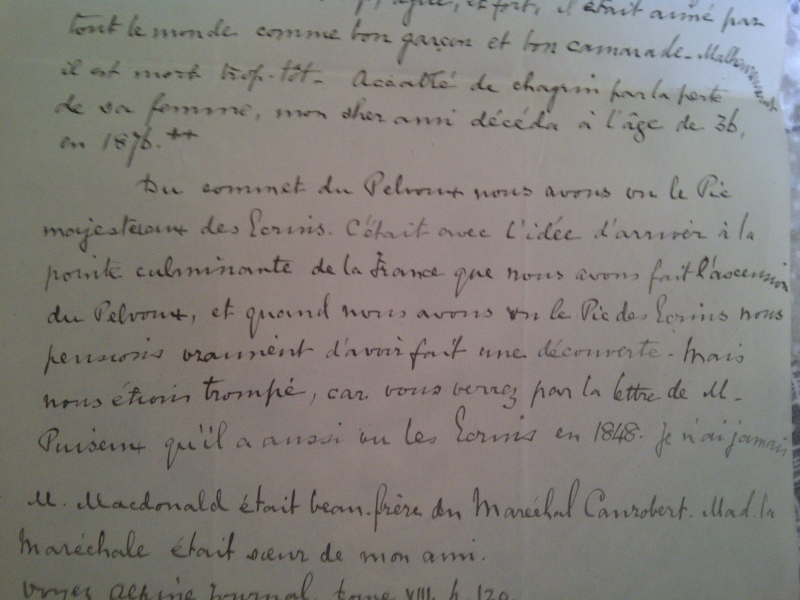 et fort, il était aimé par
tout le monde comme bon garçon et bon camarade. Malheureusement
il est mort trop-tôt. Accablé de chagrin par la perte
de sa femme, mon cher ami décéda à l'âge de 36,
en 1876. **
Du sommet du Pelvoux nous avons vu le Pic
majestueux des Ecrins. C'était avec l'idée d'arriver à la
pointe culminante de la France que nous avons fait l'ascension
du Pelvoux, et quand nous avons vu le Pic des Ecrins nous
pensions vraiment d'avoir fait une découverte. Mais
nous étions trompé, car vous verrez par la lettre de M.
Puiseux qu'il a aussi vu les Ecrins en 1848. Je n'ai jamais
M. Macdonald était beau-frère du Maréchal Canrobert. Mad. la
Maréchale était sœur de mon ami.
Voyez Alpine Journal, tome VIII, p. 120.